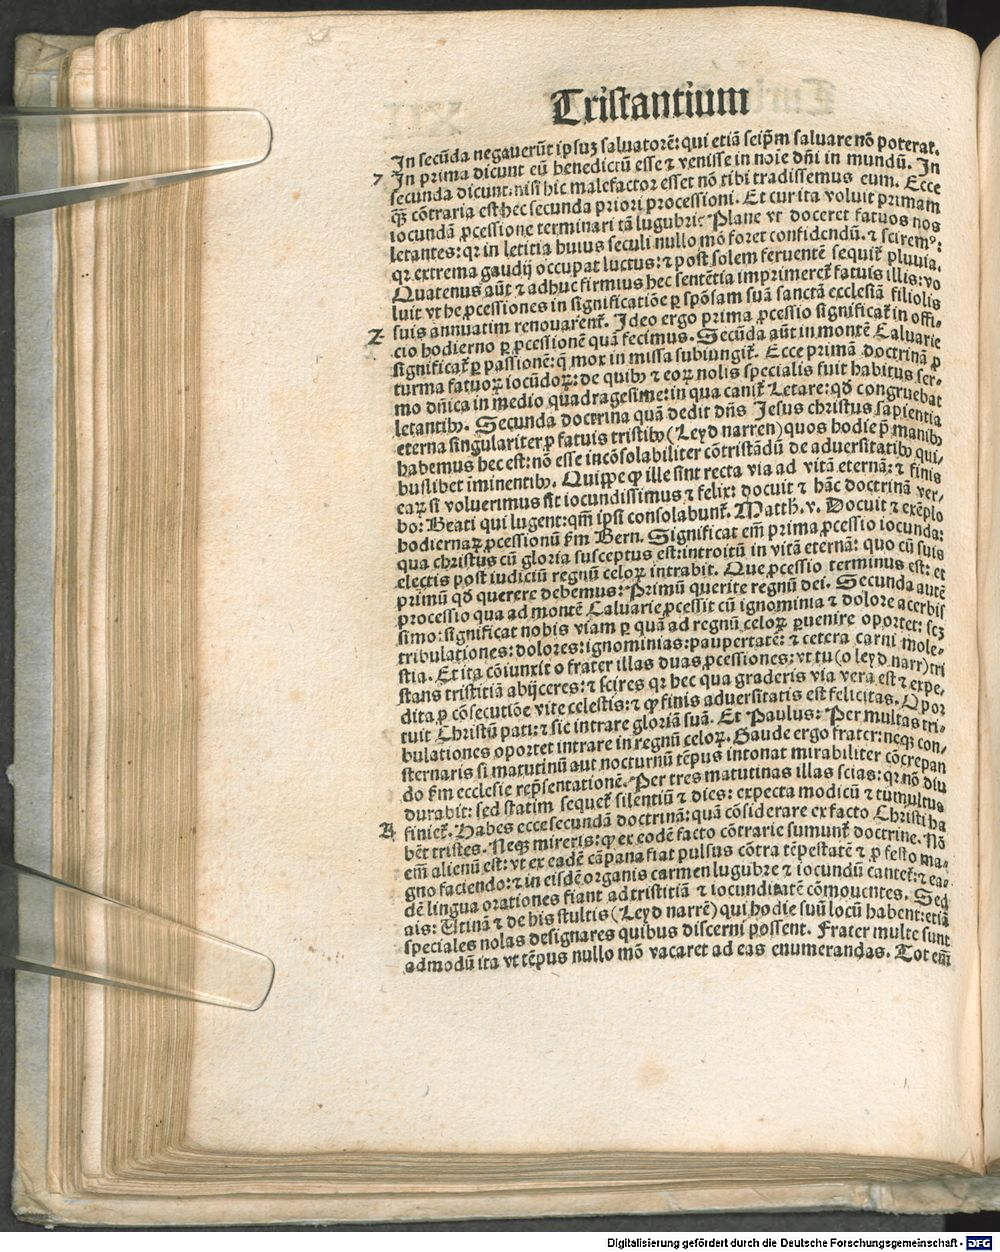 Tristantium
In secūda negauerūt ipsuꝫ saluatorē: qui etiā seip̄m saluare nō poterat.
7 In prima dicunt eū benedictū esse ⁊ venisse in noīe dn̄i in mundū. In
secunda dicunt: nisi hic malefactor esset nō tibi tradissemus eum. Ecce
ꝙ̄ cōtraria est hec secunda priori processioni. Et cur ita voluit primam
iocundā ꝓcessione terminari tā lugubri? Plane vt doceret fatuos nos
letantes: qꝛ in letitia huius seculi nullo mō foret confidendū. ⁊ scirem⁹:
qꝛ extrema gaudij occupat luctus: ⁊ post solem feruentē sequit᷑ pluuia.
Quatenus aūt ⁊ adhuc firmius hec sentētia imprimeret᷑ fatuis illis: vo
luit vt he ꝓcessiones in significatiōe ꝑ spōsam suā sanctā ecclesiā filiolis
Z suis annuatim renouarent᷑. Ideo ergo prima ꝓcessio significat᷑ in offi⸗
cio hodierno ꝑ ꝓcessionē quā fecimus. Secūda aūt in montē Caluarie
significat᷑ ꝑ passionē: q̄ mox in missa subiungit᷑. Ecce primā doctrinā ꝓ
turma fatuoꝝ iocūdoꝝ: de quibꝰ ⁊ eoꝝ nolis specialis fuit habitus ser⸗
mo dn̄ica in medio quadragesime: in qua canit᷑ Letare: qd̄ congruebat
letantibꝰ. Secunda doctrina quā dedit dn̄s Jesus christus sapientia
eterna singulariter ꝓ fatuis tristibꝰ (Leyd narren) quos hodie p̄ manibꝰ
habemus hec est: nō esse incōsolabiliter cōtristādū de aduersitatibꝰ qui⸗
buslibet iminentibꝰ. Quippe ꝙ ille sint recta via ad vitā eternā: ⁊ finis
eaꝝ si voluerimus sit iocundissimus ⁊ felix: docuit ⁊ hāc doctrinā ver⸗
bo: Beati qui lugent: qm̄ ipsi consolabunt᷑. Matth. v. Docuit ⁊ exēplo
hodiernaꝝ ꝓcessionū ẜm Bern. Significat em̄ prima ꝓcessio iocunda:
qua christus cū gloria susceptus est: introitū in vitā eternā: quo cū suis
electis post iudiciū regnū celoꝝ intrabit. Que ꝓcessio terminus est: et
primū qd̄ querere debemus: Primū querite regnū dei. Secunda autē
processio qua ad montē Caluarie ꝓcessit cū ignominia ⁊ dolore acerbis
simo: significat nobis viam ꝑ quā ad regnū celoꝝ ꝑuenire oportet: scꝫ
tribulationes: dolores: ignominias: paupertatē: ⁊ cetera carni mole⸗
stia. Et ita cōiunxit o frater illas duas ꝓcessiones: vt tu (o leyd narr) tri
stans tristitiā abijceres: ⁊ scires qꝛ hec qua graderis via vera est ⁊ expe⸗
dita ꝓ cōsecutiōe vite celestis: ⁊ ꝙ finis aduersitatis est felicitas. Opor
tuit Christū pati: ⁊ sic intrare gloriā suā. Et Paulus: Per multas tri⸗
bulationes oportet intrare in regnū celoꝝ. Gaude ergo frater: neqꝫ con⸗
sternaris si matutinū aut nocturnū tēpus intonat mirabiliter cōcrepan
do ẜm ecclesie rep̄sentationē. Per tres matutinas illas scias: qꝛ nō diu
durabit: sed statim sequet᷑ silentiū ⁊ dies: expecta modicū ⁊ tumultus
A finiet᷑. Habes ecce secundā doctrinā: quā cōsiderare ex facto Christi ha
bēt tristes. Neqꝫ mireris: ꝙ ex eodē facto cōtrarie sumunt᷑ doctrine. Nō
em̄ alienū est: vt ex eadē cāpana fiat pulsus cōtra tēpestatē ⁊ ꝓ festo ma⸗
gno faciendo: ⁊ in eisdē organis carmen lugubre ⁊ iocundū cantet᷑: ⁊ ea⸗
dē lingua orationes fiant ad tristitiā ⁊ iocunditatē cōmouentes. Sed
ais: Utinā ⁊ de his stultis (Leyd narrē) qui hodie suū locū habent: etiā
speciales nolas designares quibus discerni possent. Frater multe sunt
admodū ita vt tēpus nullo mō vacaret ad eas enumerandas. Tot em̄
Digitalisierung gefördert durch die Deutsche Forschungsgemeinschaft - DFG